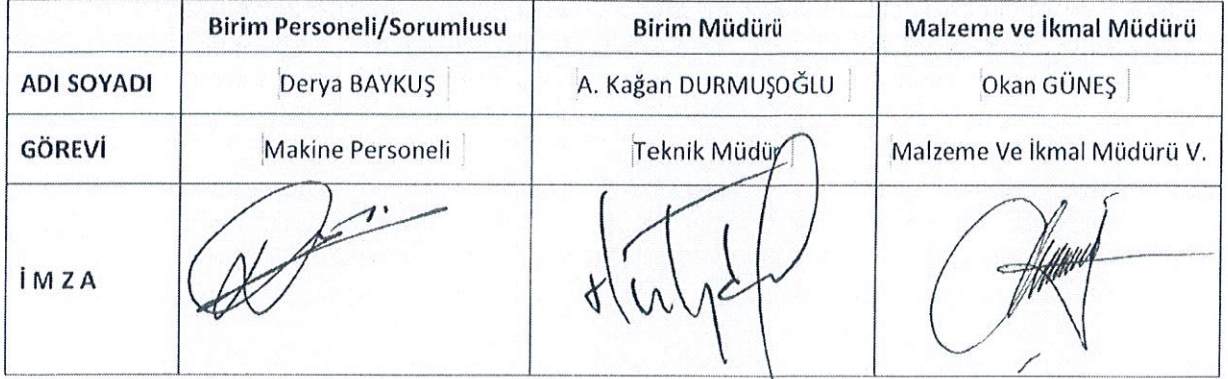 Birim Personeli/Sorumlusu Birim Müdürü Malzeme ve İkmal Müdürü
ADI SOYADI Derya BAYKUŞ A. Kağan DURMUŞOĞLU Okan GÜNEŞ
GÖREVİ Makine Personeli Teknik Müdür Malzeme Ve İkmal Müdürü V.
İ M Z A